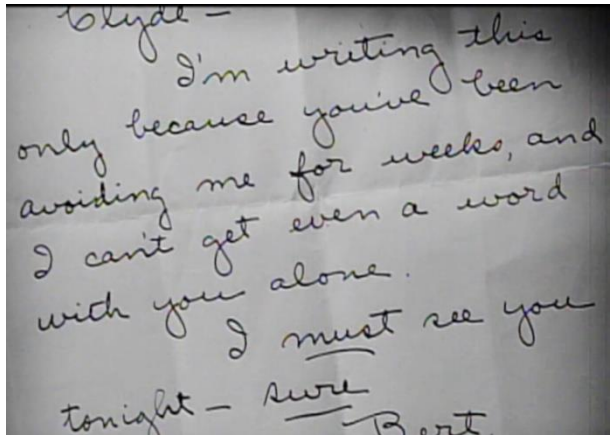 Clyde —
I'm writing this
only because you've been
avoiding me for weeks, and
I can't get even a word
with you alone.
I must see you
tonight — sure
Bert